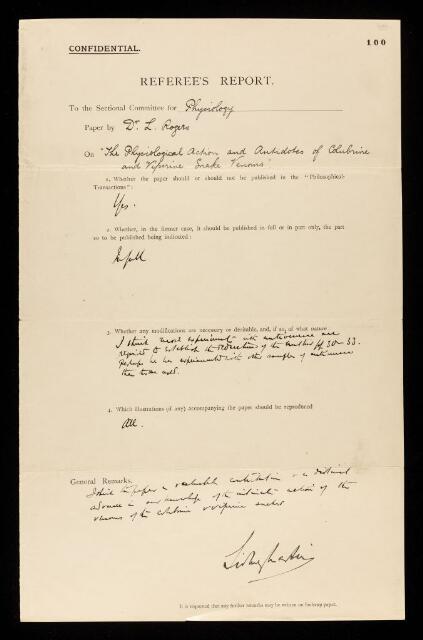 CONFIDENTIAL.
100
REFEREE'S REPORT.
To the Sectional Committee for Physiology
Paper by Dr L. Rogers
On "The Physiological Action and Antidotes of Colubrine
and Viperine Snake Venoms"
1. Whether the paper should or should not be published in the "Philosophical
Transactions":
Yes.
2. Whether, in the former case, it should be published in full or in part only, the part
so to be published being indicated:
In full
3. Whether any modifications are necessary or desirable, and, if so, of what nature
I think more experiments with antivenine are
required to establish the deductions of the author pp 30-33.
Perhaps he has experimented with other samples of antivenine
than those used.
4. Which illustrations (if any) accompanying the paper should be reproduced
All.
General Remarks.
I think the paper a valuable contribution & a distinct
advance in our knowledge of the intimate action of the
venoms of the colubrine & viperine snakes
Sidney Martin
It is requested that any further remarks may be written on foolscap paper.